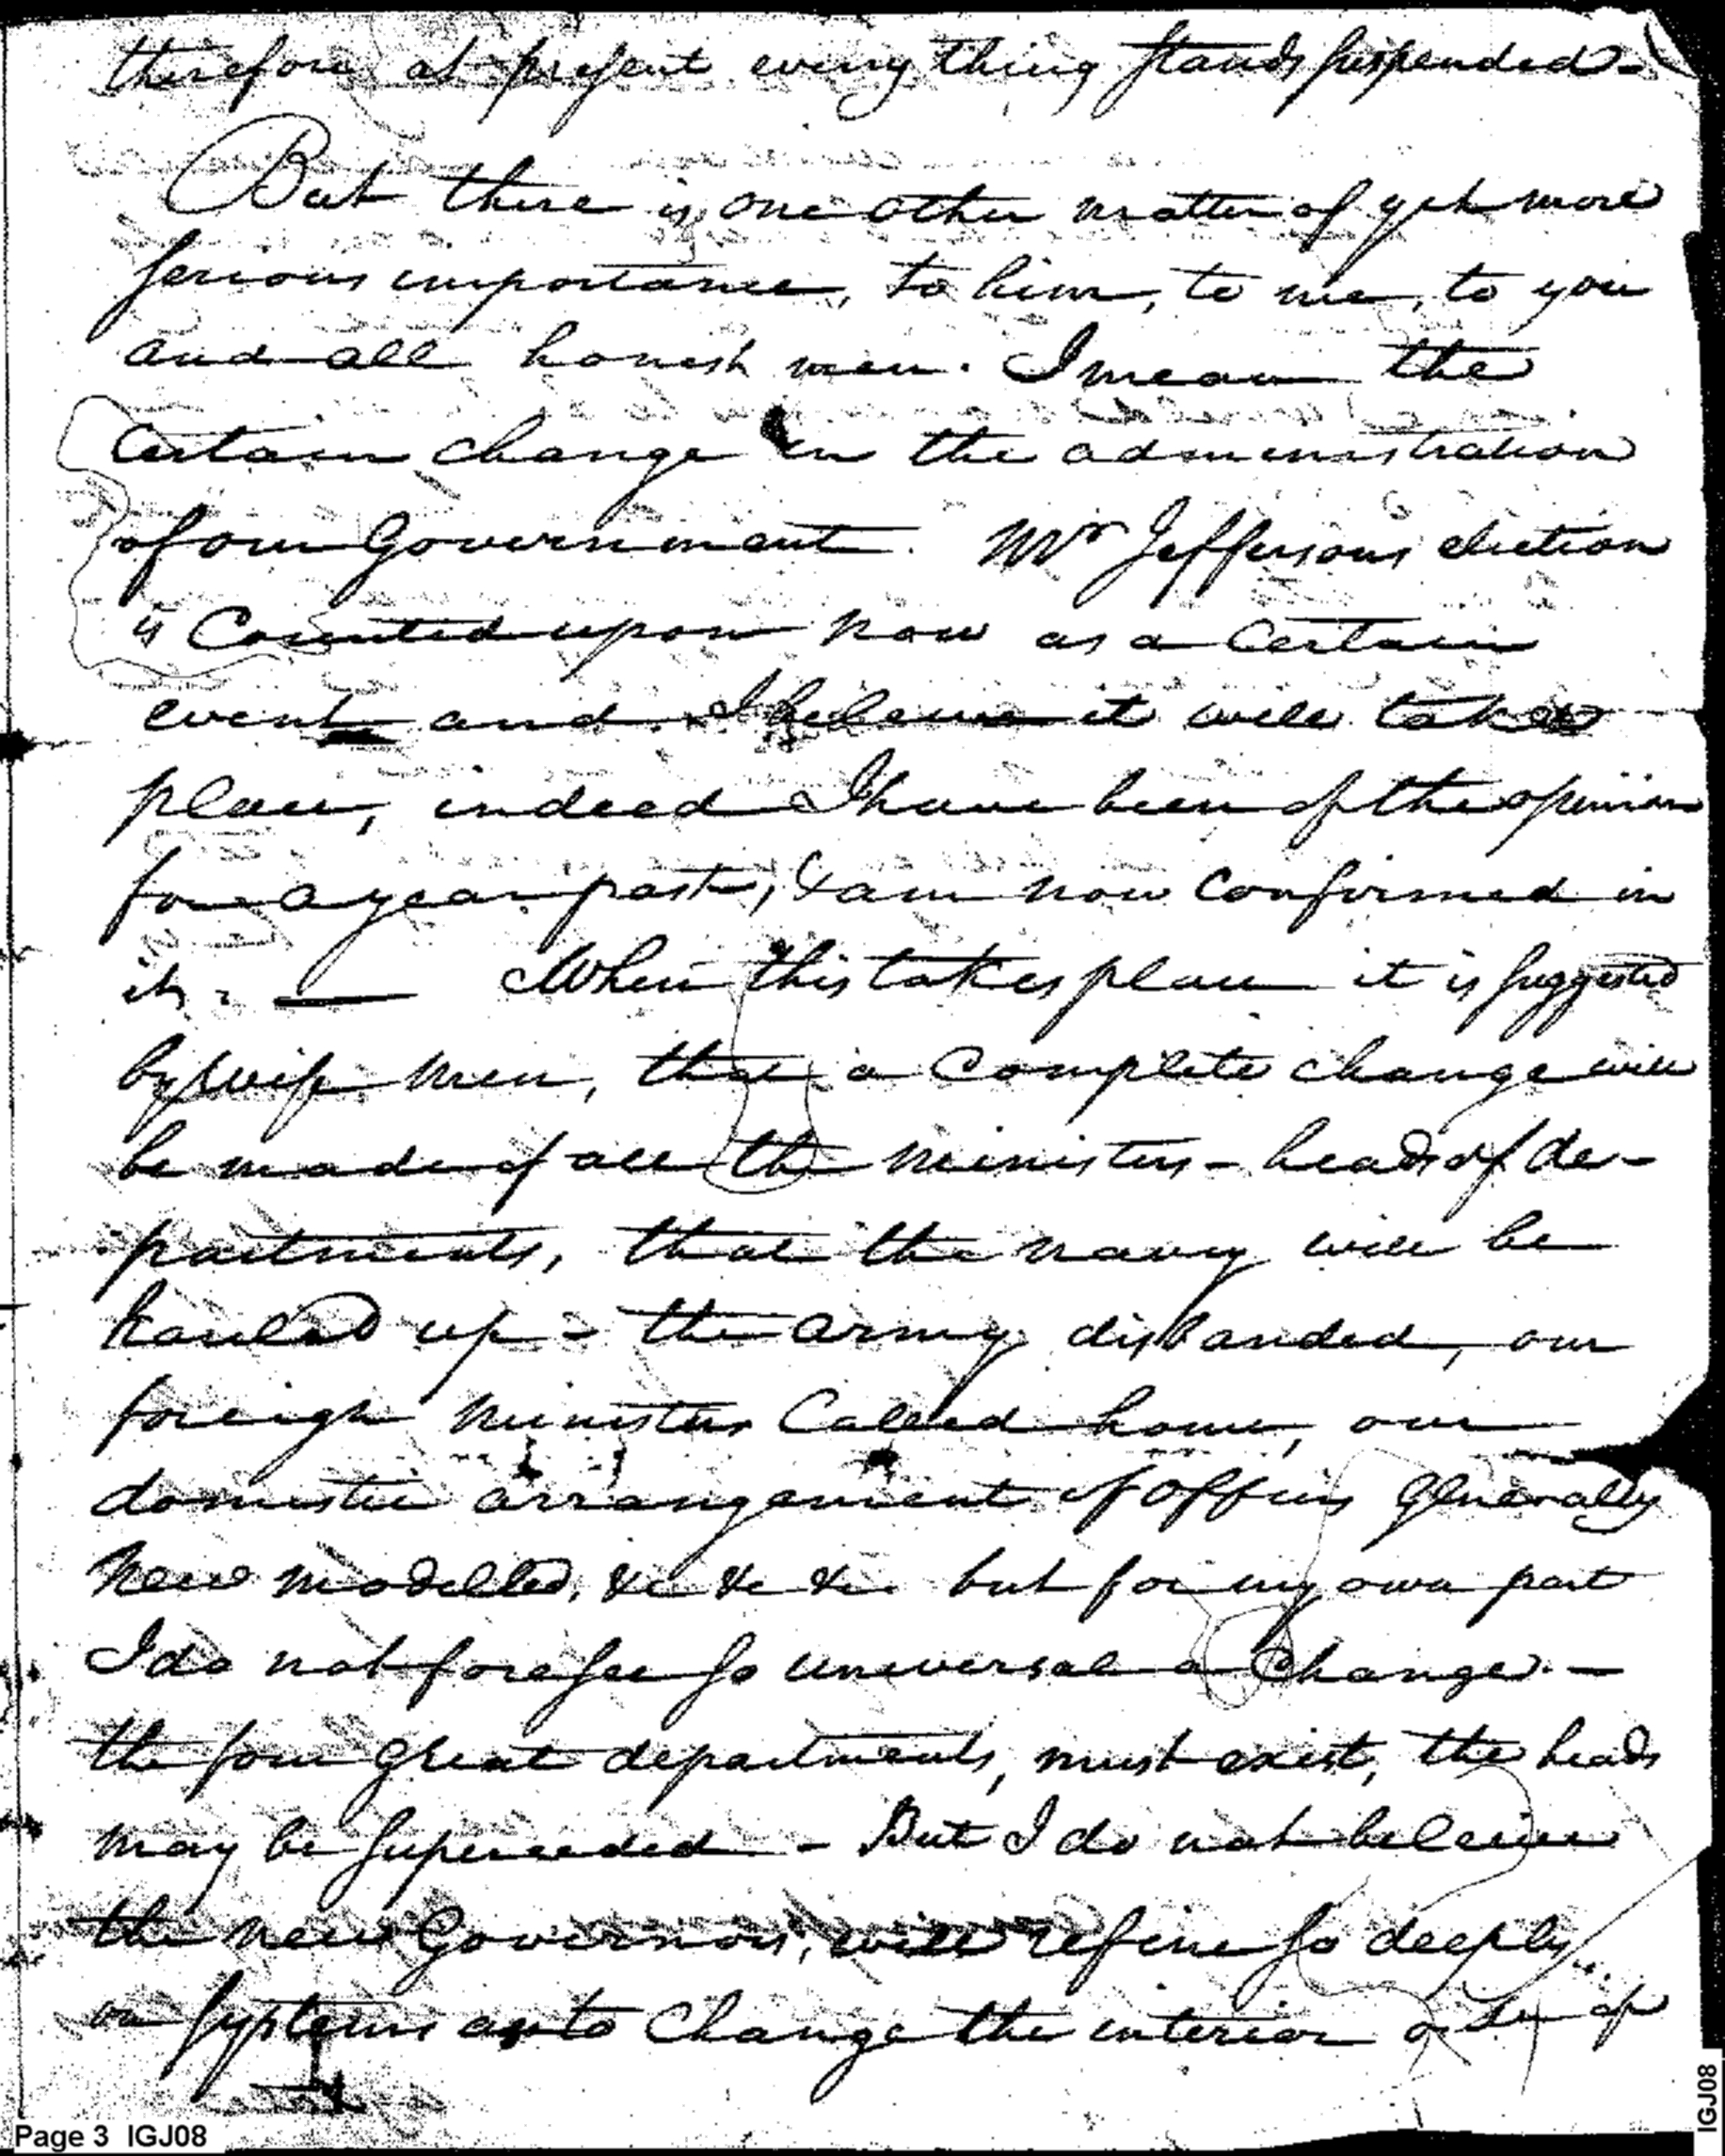 therefore at present every thing stands suspended -
But there is one other matter of yet more
serious importance, to him, to me, to you
and all honest men. I mean the
Certain change in the administration
of our Government. Mr Jeffersons election
is Counted upon now as a Certain
event and I beleive it will take
place, indeed I have been of the opinion
for a year past, & am now Confirmed in
it. — When this takes place it is suggested
by wise men, that a Complete change will
be made of all the ministers - heads of de-
partments, that the navy will be
hauled up - the army disbanded, our
foreign ministers Called home, our
domestic arrangement of offices generally
new modelled, &c &c &c but for my own part
I do not foresee so universal a Change. —
the four great departments, must exist, the heads
may be superceded - But I do not beleive
the new Governors, will refine so deeply
on systems as to Change the interior order of
Page 3 IGJ08
IGJ08